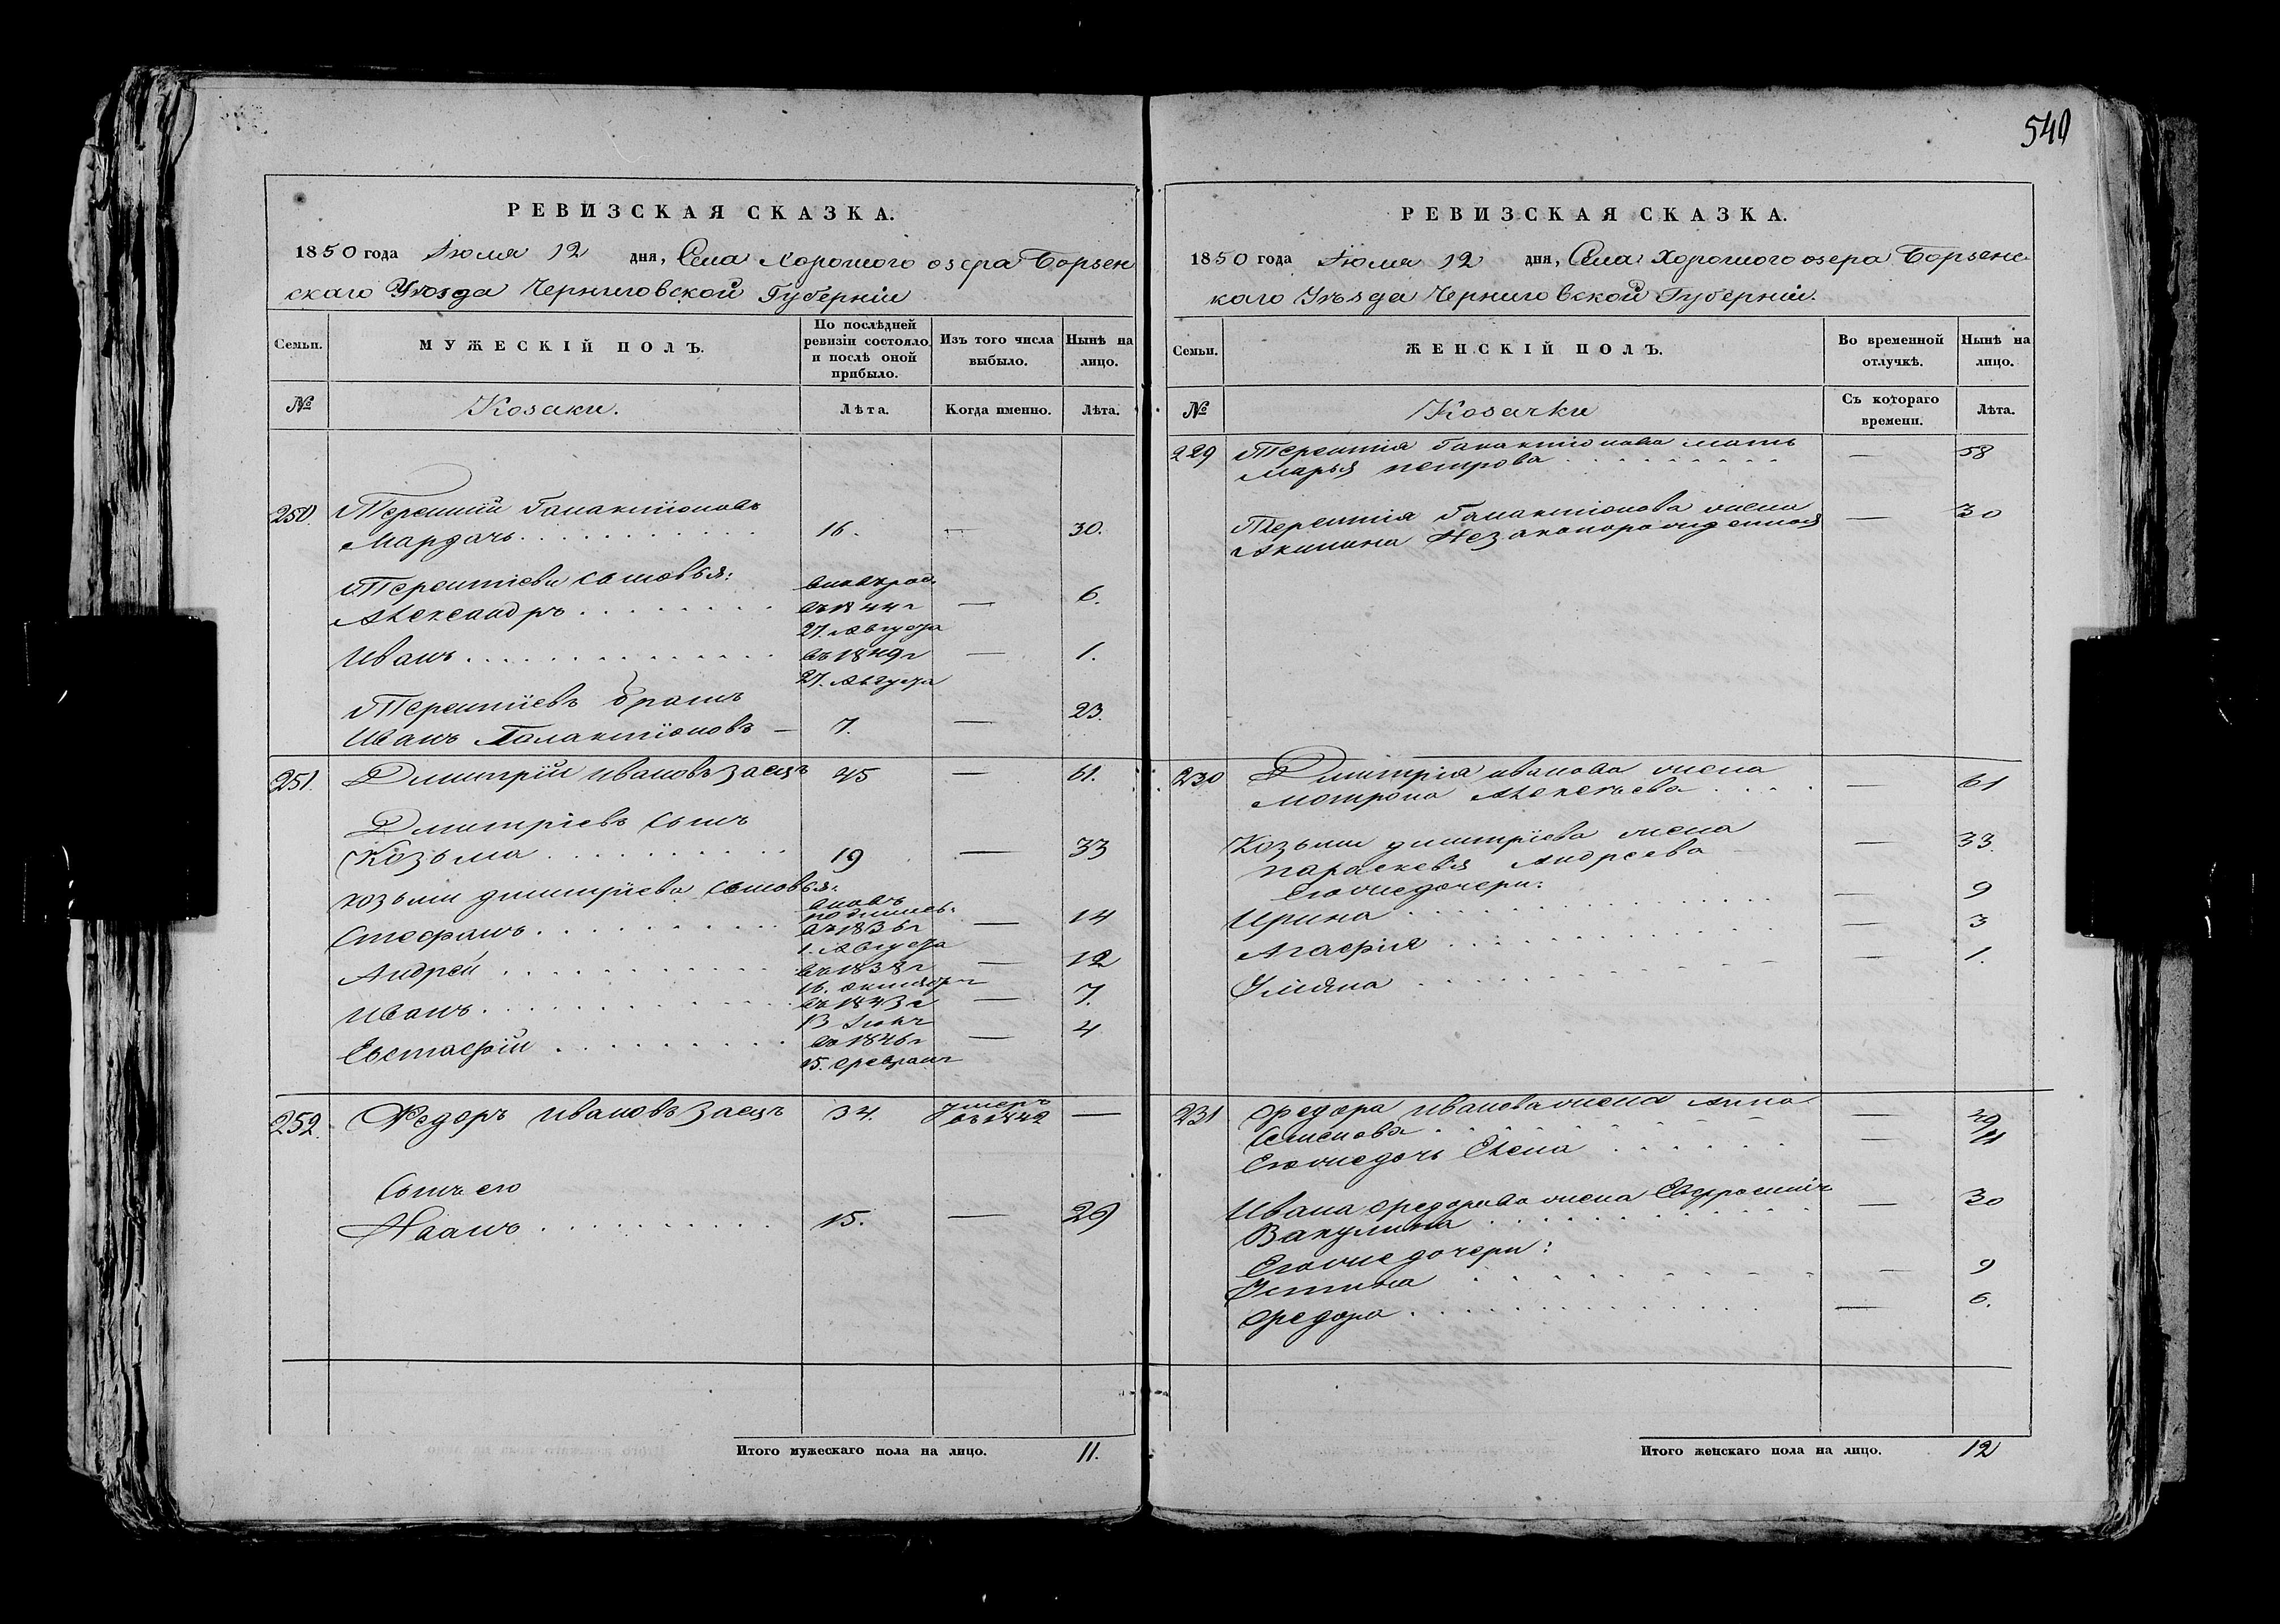 540
РЕВИЗСКАЯ СКАЗКА.
1850 года Іюля 12 дня, Села Хорошого озера Борзен
скаго Уѣзда Черниговской Губерніи
Семьи.
МУЖЕСКІЙ ПОЛЪ.
По послѣдней
ревизіи состояло,
и послѣ оной
прибыло.
Изъ того числа
выбыло.
Нынѣ на
лицо.
№
Козаки.
Лѣта.
Когда именно.
Лѣта.
250. Терентій Галактіоновъ
Мардачь 16. — 30.
Терентіевы сыновья:
Александръ въ 1844 г — 6.
27. Августа
Иванъ въ 1849 г — 1.
27. Августа
Терентіевъ братъ 23.
Иванъ Галактіоновъ — 7. —
251. Дмитрій Ивановъ Заецъ 45 — 61.
Дмитріевъ сынъ
Козьма 19 — 33
Козьмы Дмитріева сыновья:
вновь
Стефанъ въ 1836 г — 14
1. Августа
Андрей въ 1838 г — 12
16. октября
Иванъ въ 1843 г — 7.
13
Евстафій въ 1846 г — 4
15. февраля
252. Федоръ Ивановъ Заецъ 34. умеръ
въ 1842 —
Сынъ его
Иванъ 15. — 29
Итого мужескаго пола на лицо. 11.
РЕВИЗСКАЯ СКАЗКА.
1850 года Іюля 12 дня, Села Хорошого озера Борзенс
каго Уѣзда Черниговской Губерніи.
Семьи.
ЖЕНСКІЙ ПОЛЪ.
Во временной
отлучкѣ.
Нынѣ на
лицо.
№
Козачки
Съ котораго
времени.
Лѣта.
229 Терентія Галактіонова мать
Марья Петрова — 58
Терентія Галактіонова жена — 30
Акилина Незаконорожденная
230 Дмитрія Иванова жена
Мотрона Алексѣева — 61
Козьмы Дмитріева жена — 33.
Параскевія Андреева
Егоже дочери:
Ирина — 9
Агафія — 3
Уліяна — 1.
231 Федора Иванова жена Анна —
Семенова 49
Егоже дочь Елена — 11
Ивана Федорова жена Евфросинія — 30
Вакулина
Егоже дочери:
Устина — 9
Федора — 6.
Итого женскаго пола на лицо. 12